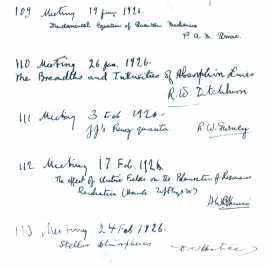 109 Meeting 19 Jan. 1926.
Fundamental Equations of Quantum Mechanics
P. A. M. Dirac.
110 Meeting 26 Jan. 1926.
The Breadths and Intensities of Absorption Lines
R. W. Ditchburn
111 Meeting 3 Feb 1926.
JJ's Ring quanta R. W. Gurney
112 Meeting 17 Feb. 1926.
The effect of Electric Fields on the Polarisation of Resonance
Radiation (Hanle Zeit
113 Meeting 24 Feb 1926.
Stellar Atmospheres